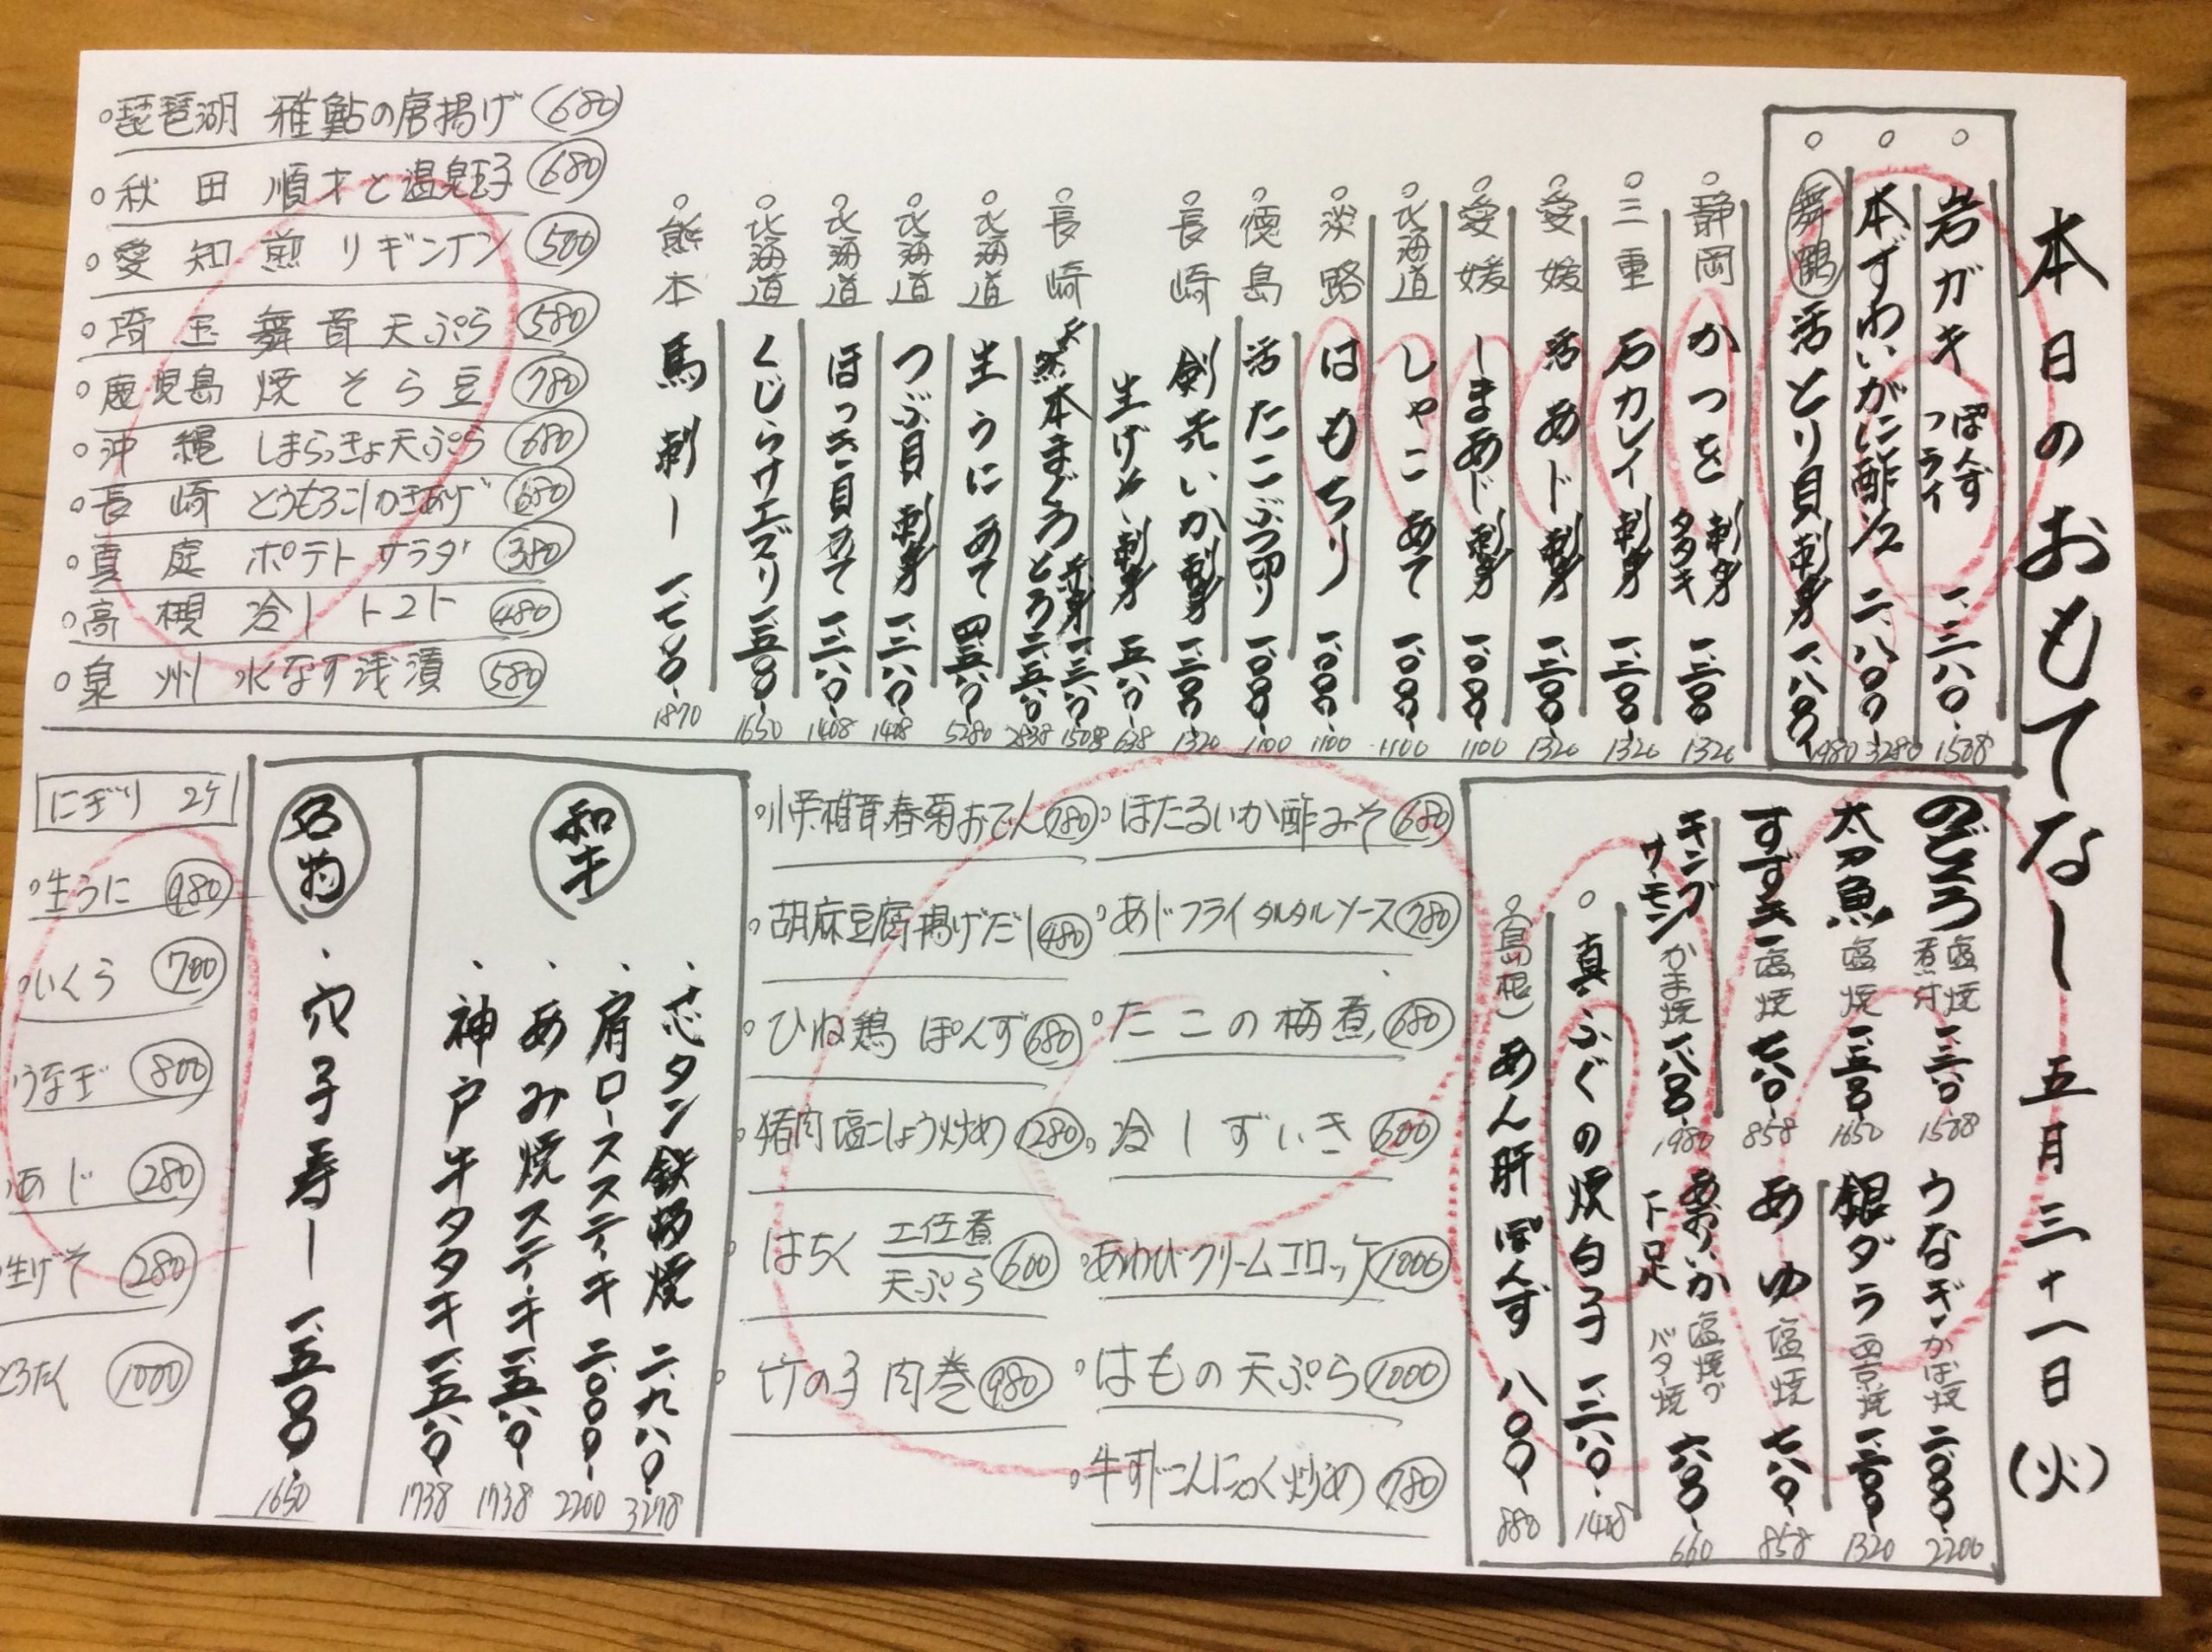 本日のおもてなし 五月三十一日(火)
岩ガキ ぽんず フライ 一、三八〇 1508
本ずわいがに酢 二、八〇〇 3280
舞鶴 活とり貝刺身 一、八〇〇 1980
静岡 かつを 刺身 タタキ 一、二〇〇 1320
三重 石カレイ刺身 一、二〇〇 1320
愛媛 活あじ刺身 一、二〇〇 1320
愛媛 しまあじ刺身 一、〇〇〇 1100
北海道 しゃこあて 一、〇〇〇 1100
淡路 はもちり 一、〇〇〇 1100
徳島 活たこぶつ切り 一、〇〇〇 1100
長崎 剣先いか刺身 一、二〇〇 1320
生げそ刺身 五八〇 638
長崎 本まぐろ 赤身 一、三八〇 1508
とろ 二、五八〇 2838
北海道 生うにあて 四、八〇〇 5280
北海道 つぶ貝刺身 一、二八〇 1408
北海道 ほっき貝あて 一、二八〇 1408
北海道 くじらサエズリ 一、五〇〇 1650
熊本 馬刺し 一、七〇〇 1870
琵琶湖 稚鮎の唐揚げ 680
秋田 順才と温泉玉子 680
愛知 煎りギンナン 500
埼玉 舞茸天ぷら 580
鹿児島 焼そら豆 780
沖縄 しまらっきょ天ぷら 680
長崎 とうもろこしかきあげ 680
真庭 ポテトサラダ 380
高槻 冷しトマト 480
泉州 水なす浅漬 580
のどぐろ 塩焼 煮付 1508
太刀魚 塩焼 一、五〇〇 1650
すずき 塩焼 七八〇 858
キングサーモン かま焼 一、八〇〇 1980
うなぎ かば焼 二、〇〇〇 2200
銀ダラ 西京焼 一、二〇〇 1320
あゆ 塩焼 七八〇 858
あおりいか下足 塩焼 バター焼 六〇〇 660
真ふぐの焼白子 一、二八〇 1408
(島根) あん肝ぽんず 八〇〇 880
ほたるいか酢みそ 680
あじフライタルタルソース 780
たこの柄煮 680
冷しずいき 600
あわびクリームコロッケ 1000
はもの天ぷら 1000
牛すじこんにゃく炒め 780
椎茸春菊おでん 780
胡麻豆腐揚げだし 480
ひね鶏ぽんず 680
猪肉塩こしょう炒め 1280
はちく 土佐煮 天ぷら 600
竹の子肉巻 980
和牛
芯タン鉄板焼 二、九八〇 3278
肩ロースステーキ 二、〇〇〇 2200
あみ焼ステーキ 一、五八〇 1738
神戸牛タタキ 一、五八〇 1738
名物
穴子寿し 一、五〇〇 1650
にぎり 2ケ
生うに 980
いくら 700
うなぎ 800
あじ 280
生げそ 280
とろたく 1000